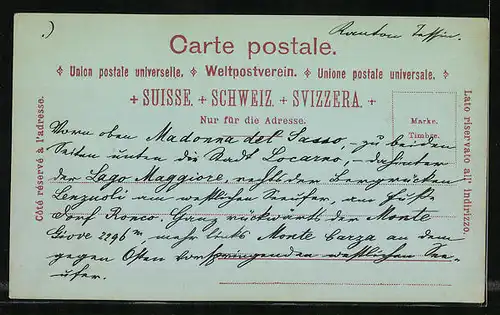 .)
Kanton Tessin.
Carte postale.
Union postale universelle. Weltpostverein. Unione postale universale.
SUISSE. SCHWEIZ. SVIZZERA.
Nur für die Adresse.
Marke.
Timbre.
Côté réservé à l'adresse.
Lato riservato all' indirizzo.
Vorn oben Madonna del Sasso, zu beiden
Seiten unten die Stadt Locarno, - dahinter
der Lago Maggiore, rechts der Bergrücken
Lenzuoli am westlichen Seeufer, am Fuße
Dorf Ronco. Ganz rückwärts der Monte
Giove 2296 m, mehr links Monte Carza an dem
gegen Osten vorspringenden westlichen See=
ufer.